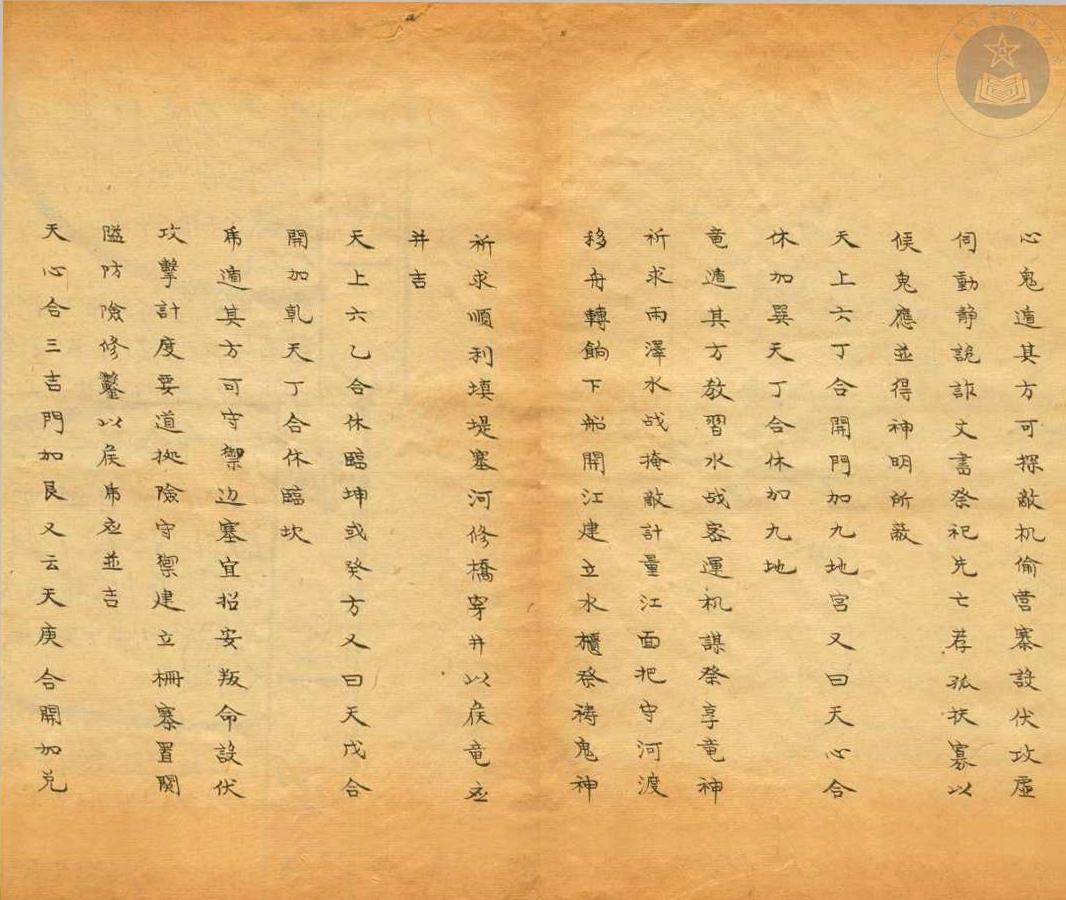 心鬼遁其方可探敵机偷营寨設伏攻虚
伺動静詭詐文書祭祀先亡荐孤扶寡以
候鬼應並得神明所蔽
天上六丁合開門加九地宮又曰天心合
休加巽天丁合休加九地
竜遁其方教習水战密運机謀祭享竜神
祈求雨澤水战掩敵計量江面把守河渡
移舟轉餉下船開江建立水櫃祭祷鬼神
祈求順利填堤塞河修橋穿井以侯竜应
并吉
天上六乙合休臨坤或癸方又曰天戊合
開加乾天丁合休臨坎
乕遁其方可守禦边塞宜招安叛命設伏
攻擊計度要道拠險守禦建立柵寨置関
隘防險修鑿以侯乕应並吉
天心合三吉門加艮又云天庚合開加兑